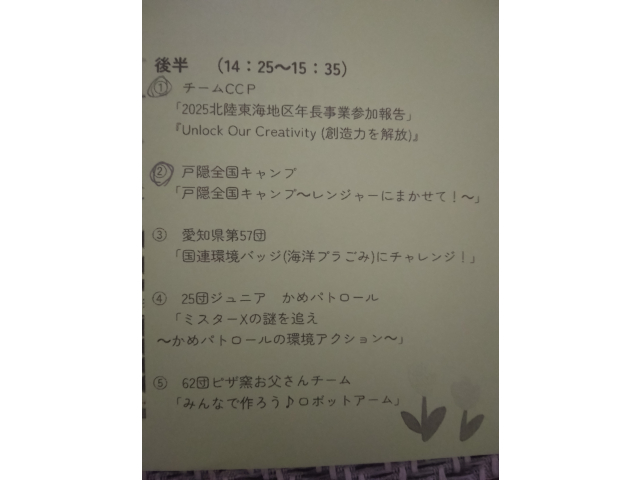 後半　（14：25～15：35）
① チームCCP
「2025北陸東海地区年長事業参加報告」
『Unlock Our Creativity (創造力を解放)』
② 戸隠全国キャンプ
「戸隠全国キャンプ～レンジャーにまかせて！～」
③ 愛知県第57団
「国連環境バッジ(海洋プラごみ)にチャレンジ！」
④ 25団ジュニア　かめパトロール
「ミスターXの謎を追え
～かめパトロールの環境アクション～」
⑤ 62団ピザ窯お父さんチーム
「みんなで作ろう♪ロボットアーム」